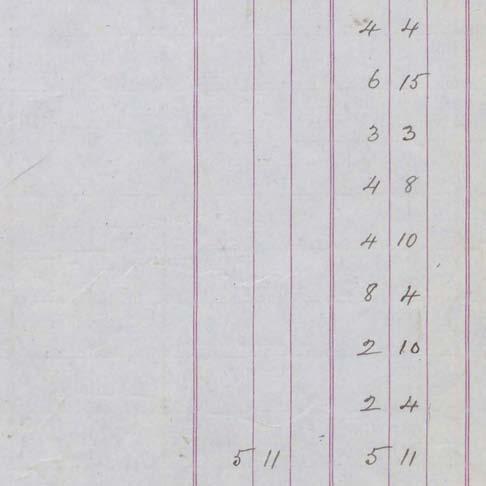 4 4
6 15
3 3
4 8
4 10
8 4
2 10
2 4
5 11 5 11